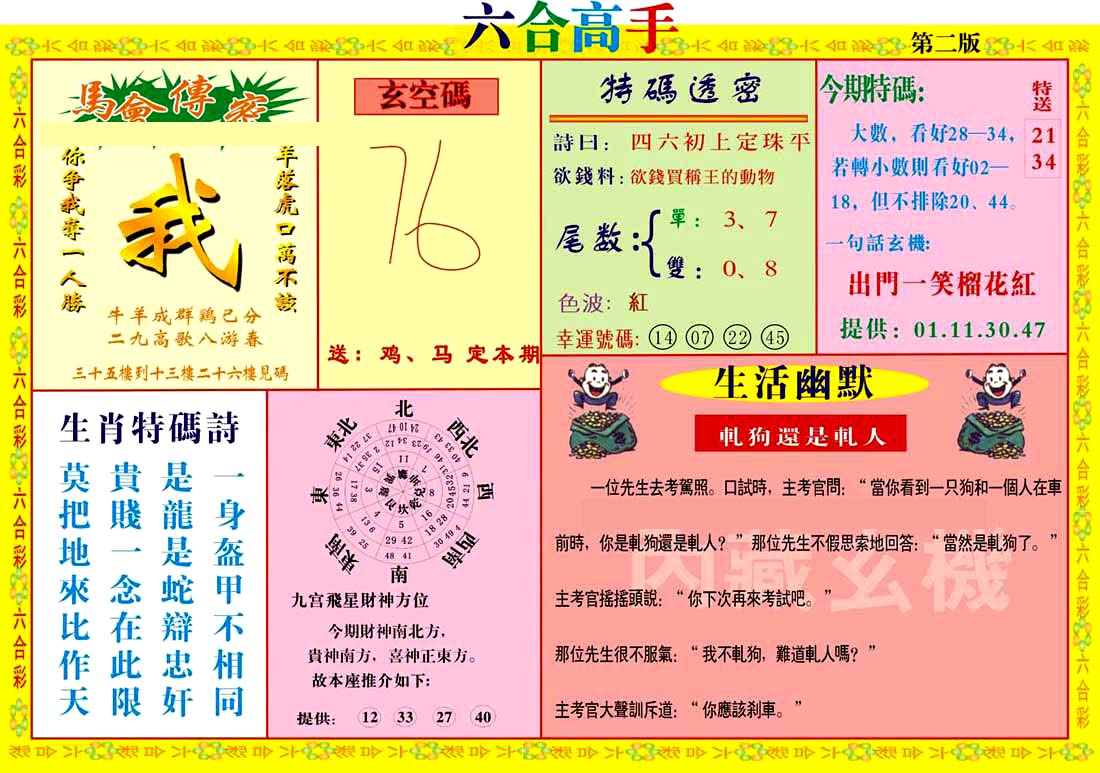 六合高手
第二版
馬會傳密
羊落虎口萬不該
我
你爭我奪一人勝
牛羊成群鶏已分
二九高歌八游春
三十五樓到十三樓二十六樓見碼
玄空碼
76
送：鸡、马 定本期
特碼透密
詩曰：四六初上定珠平
欲錢料：欲錢買稱王的動物
尾数：
單：3、7
雙：0、8
色波：紅
幸運號碼：14 07 22 45
今期特碼：
特送
21
34
大數，看好28—34，
若轉小數則看好02—
18，但不排除20、44。
一句話玄機：
出門一笑榴花紅
提供：01.11.30.47
生肖特碼詩
一身盔甲不相同
是龍是蛇辯忠奸
貴賤一念在此限
莫把地來比作天
北
東北
西北
東
西
東南
西南
南
九宫飛星財神方位
今期財神南北方，
貴神南方，喜神正東方。
故本座推介如下：
提供：12 33 27 40
生活幽默
軋狗還是軋人
一位先生去考駕照。口試時，主考官問：“當你看到一只狗和一個人在車
前時，你是軋狗還是軋人？”那位先生不假思索地回答：“當然是軋狗了。”
主考官搖搖頭說：“你下次再來考試吧。”
那位先生很不服氣：“我不軋狗，難道軋人嗎？”
主考官大聲訓斥道：“你應該刹車。”
内藏玄機
六合彩 六合彩 六合彩 六合彩 六合彩
六合彩 六合彩 六合彩 六合彩 六合彩